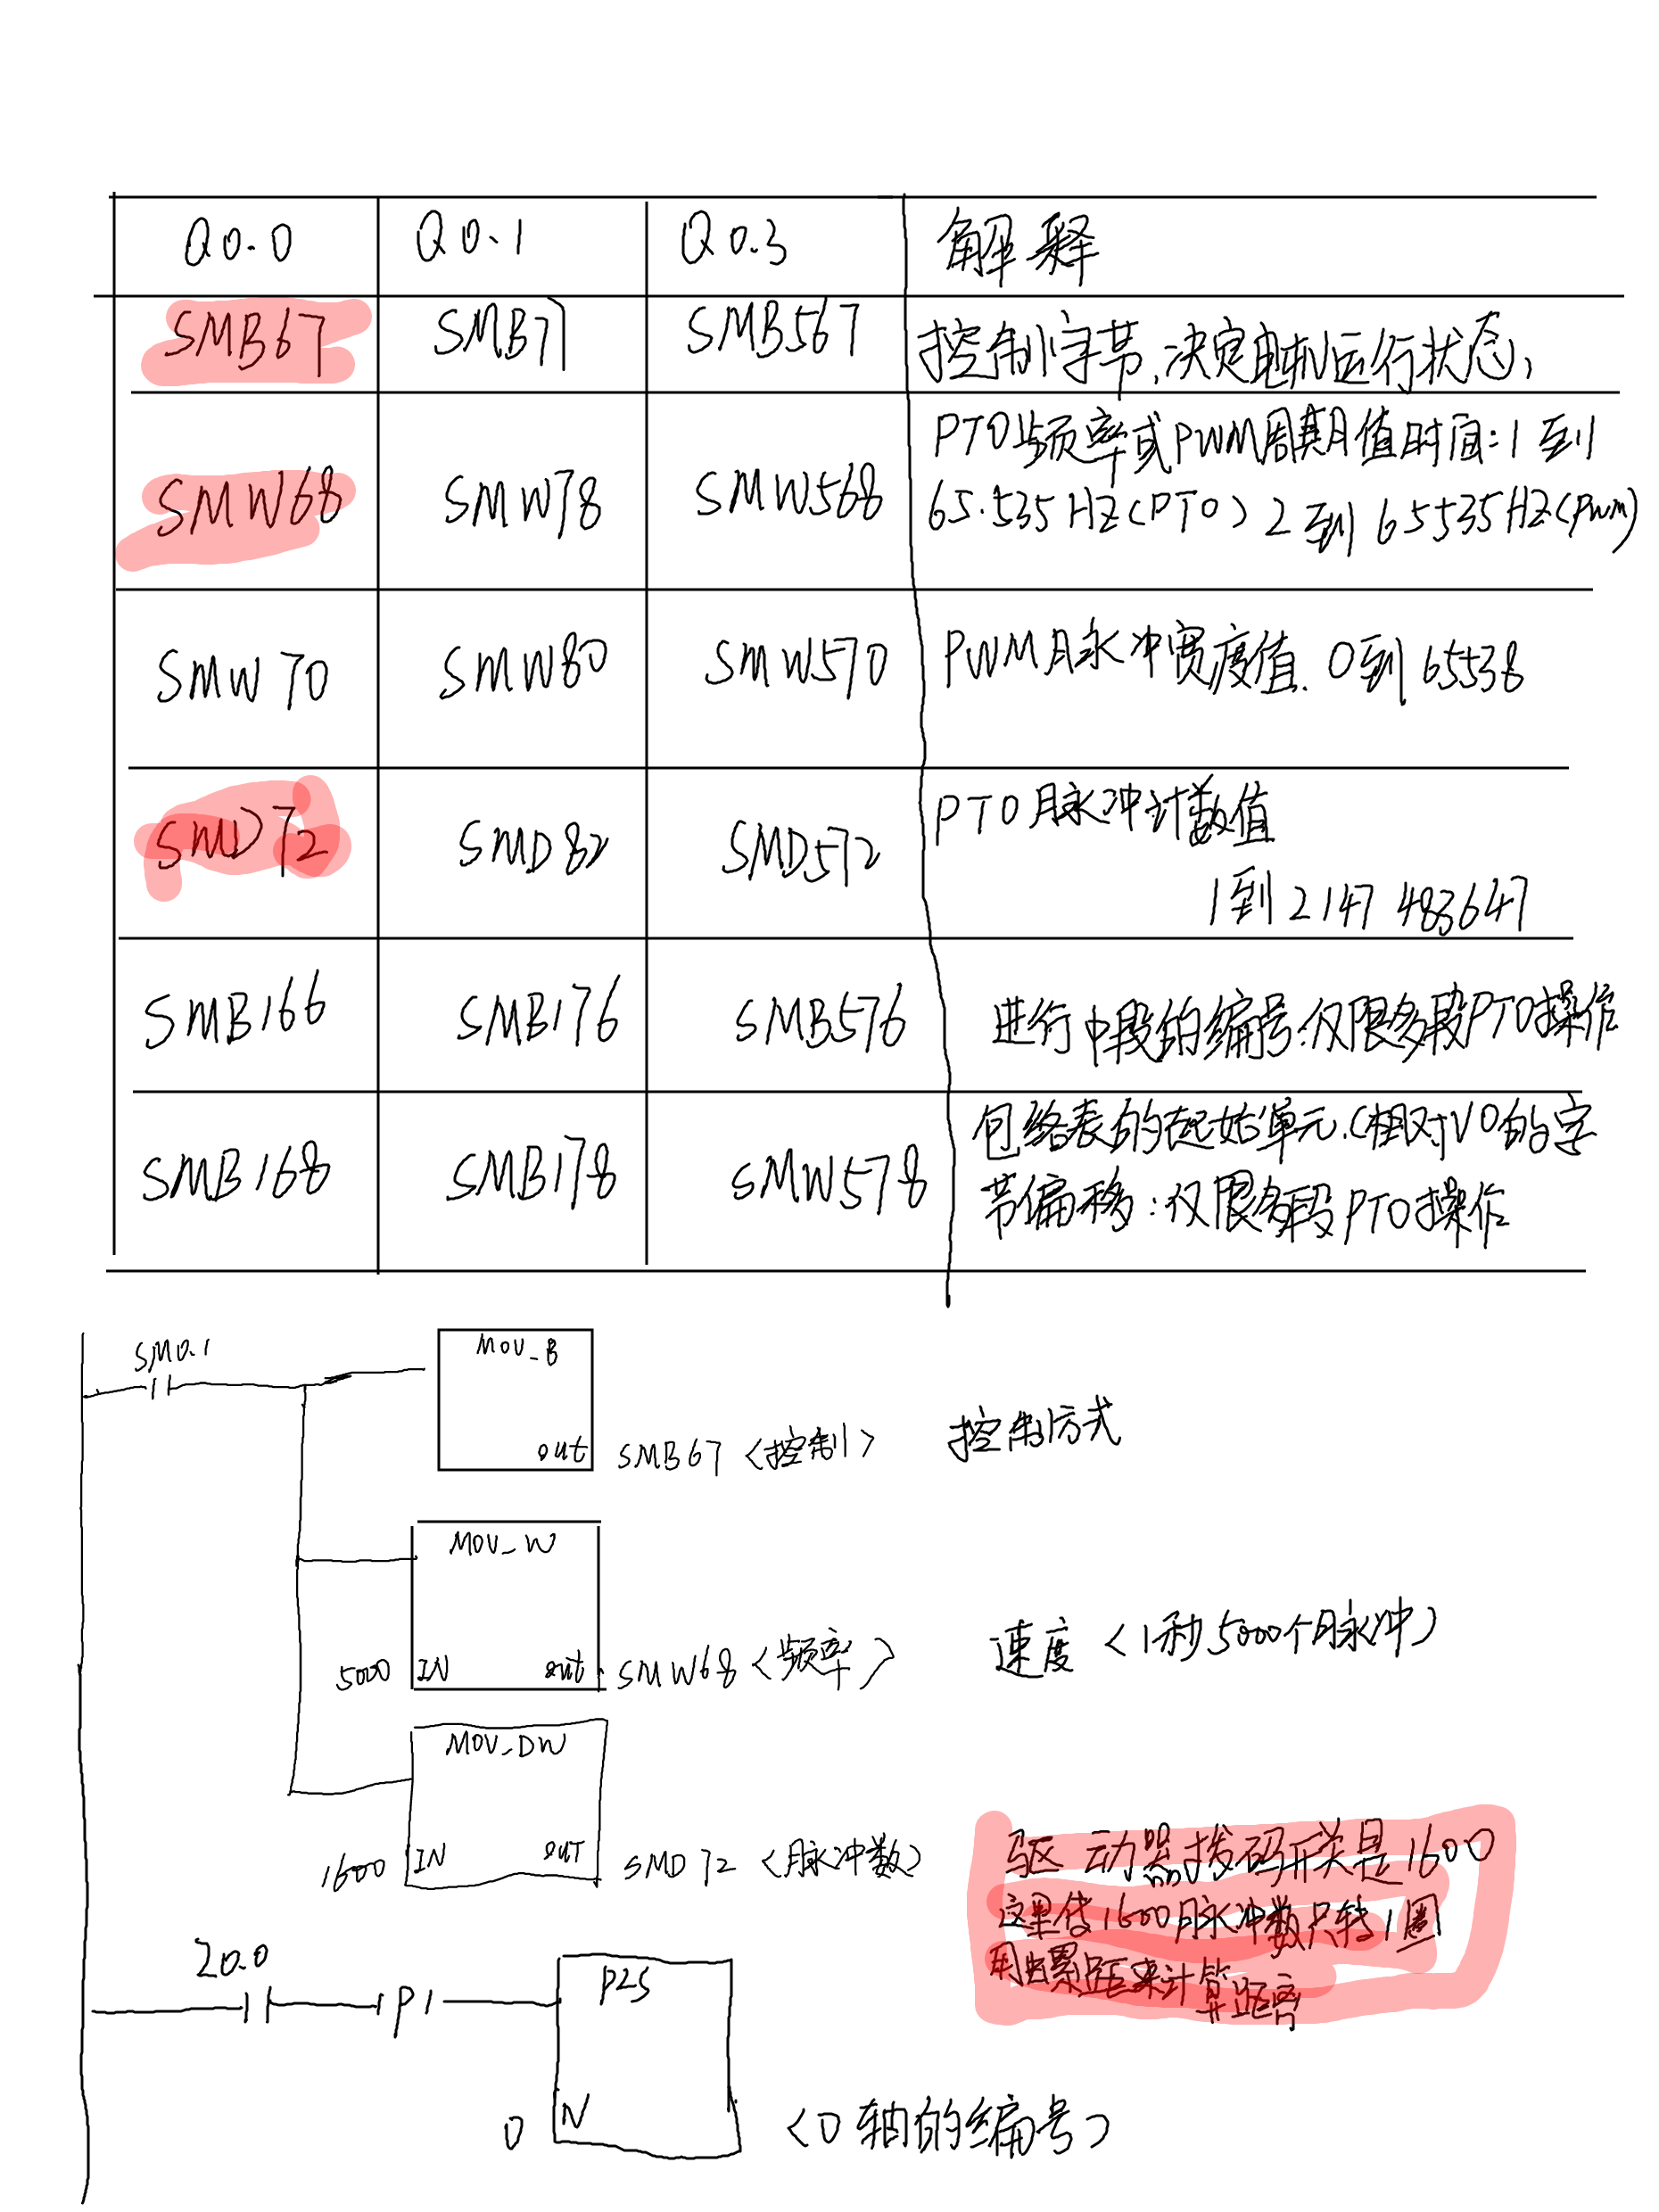 Q0.0 Q0.1 Q0.3 解释
SMB67 SMB77 SMB567 控制字节,决定电机运行状态,
SMW68 SMW78 SMW568 PTO频率或PWM周期值时间:1到
65.535HZ(PTO) 2到65535HZ(PWM)
SMW70 SMW80 SMW570 PWM脉冲宽度值. 0到65538
SMD72 SMD82 SMD572 PTO脉冲计数值
1到2147483647
SMB166 SMB176 SMB576 进行中段的编号:仅限多段PTO操作
SMB168 SMB178 SMW578 包络表的起始单元.(相对V0的字
节偏移:仅限多段PTO操作
SM0.1 MOV_B
out SMB67<控制> 控制方式
MOV_W
5000 IN out SMW68<频率> 速度<1秒5000个脉冲>
MOV_DW
1600 IN OUT SMD72<脉冲数> 驱动器拨码开关是1600
这里传1600脉冲数只转1圈
用螺距来计算距离
P1 PLS
0 N <0轴的编号>